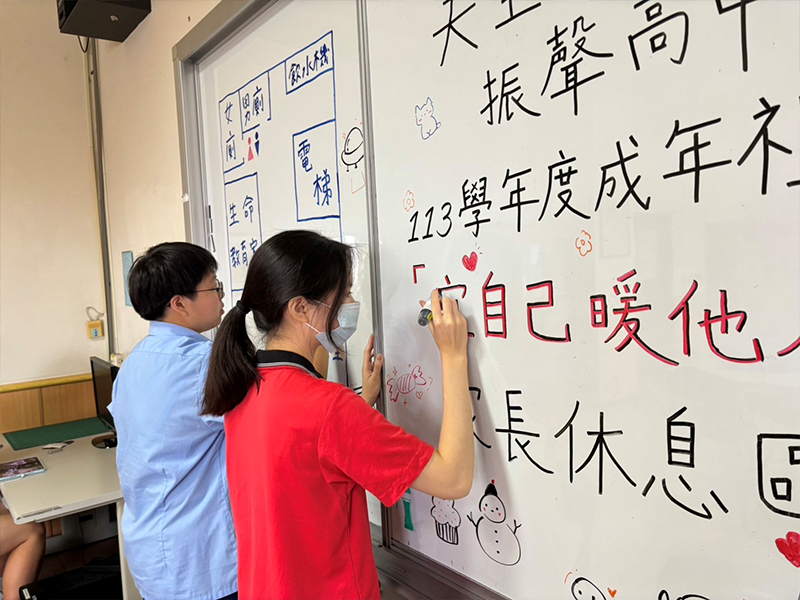 飲水機
男廁
女廁
電梯
生命
教育
天主
振聲高中
113學年度成年社
「定自己暖他人
家長休息區